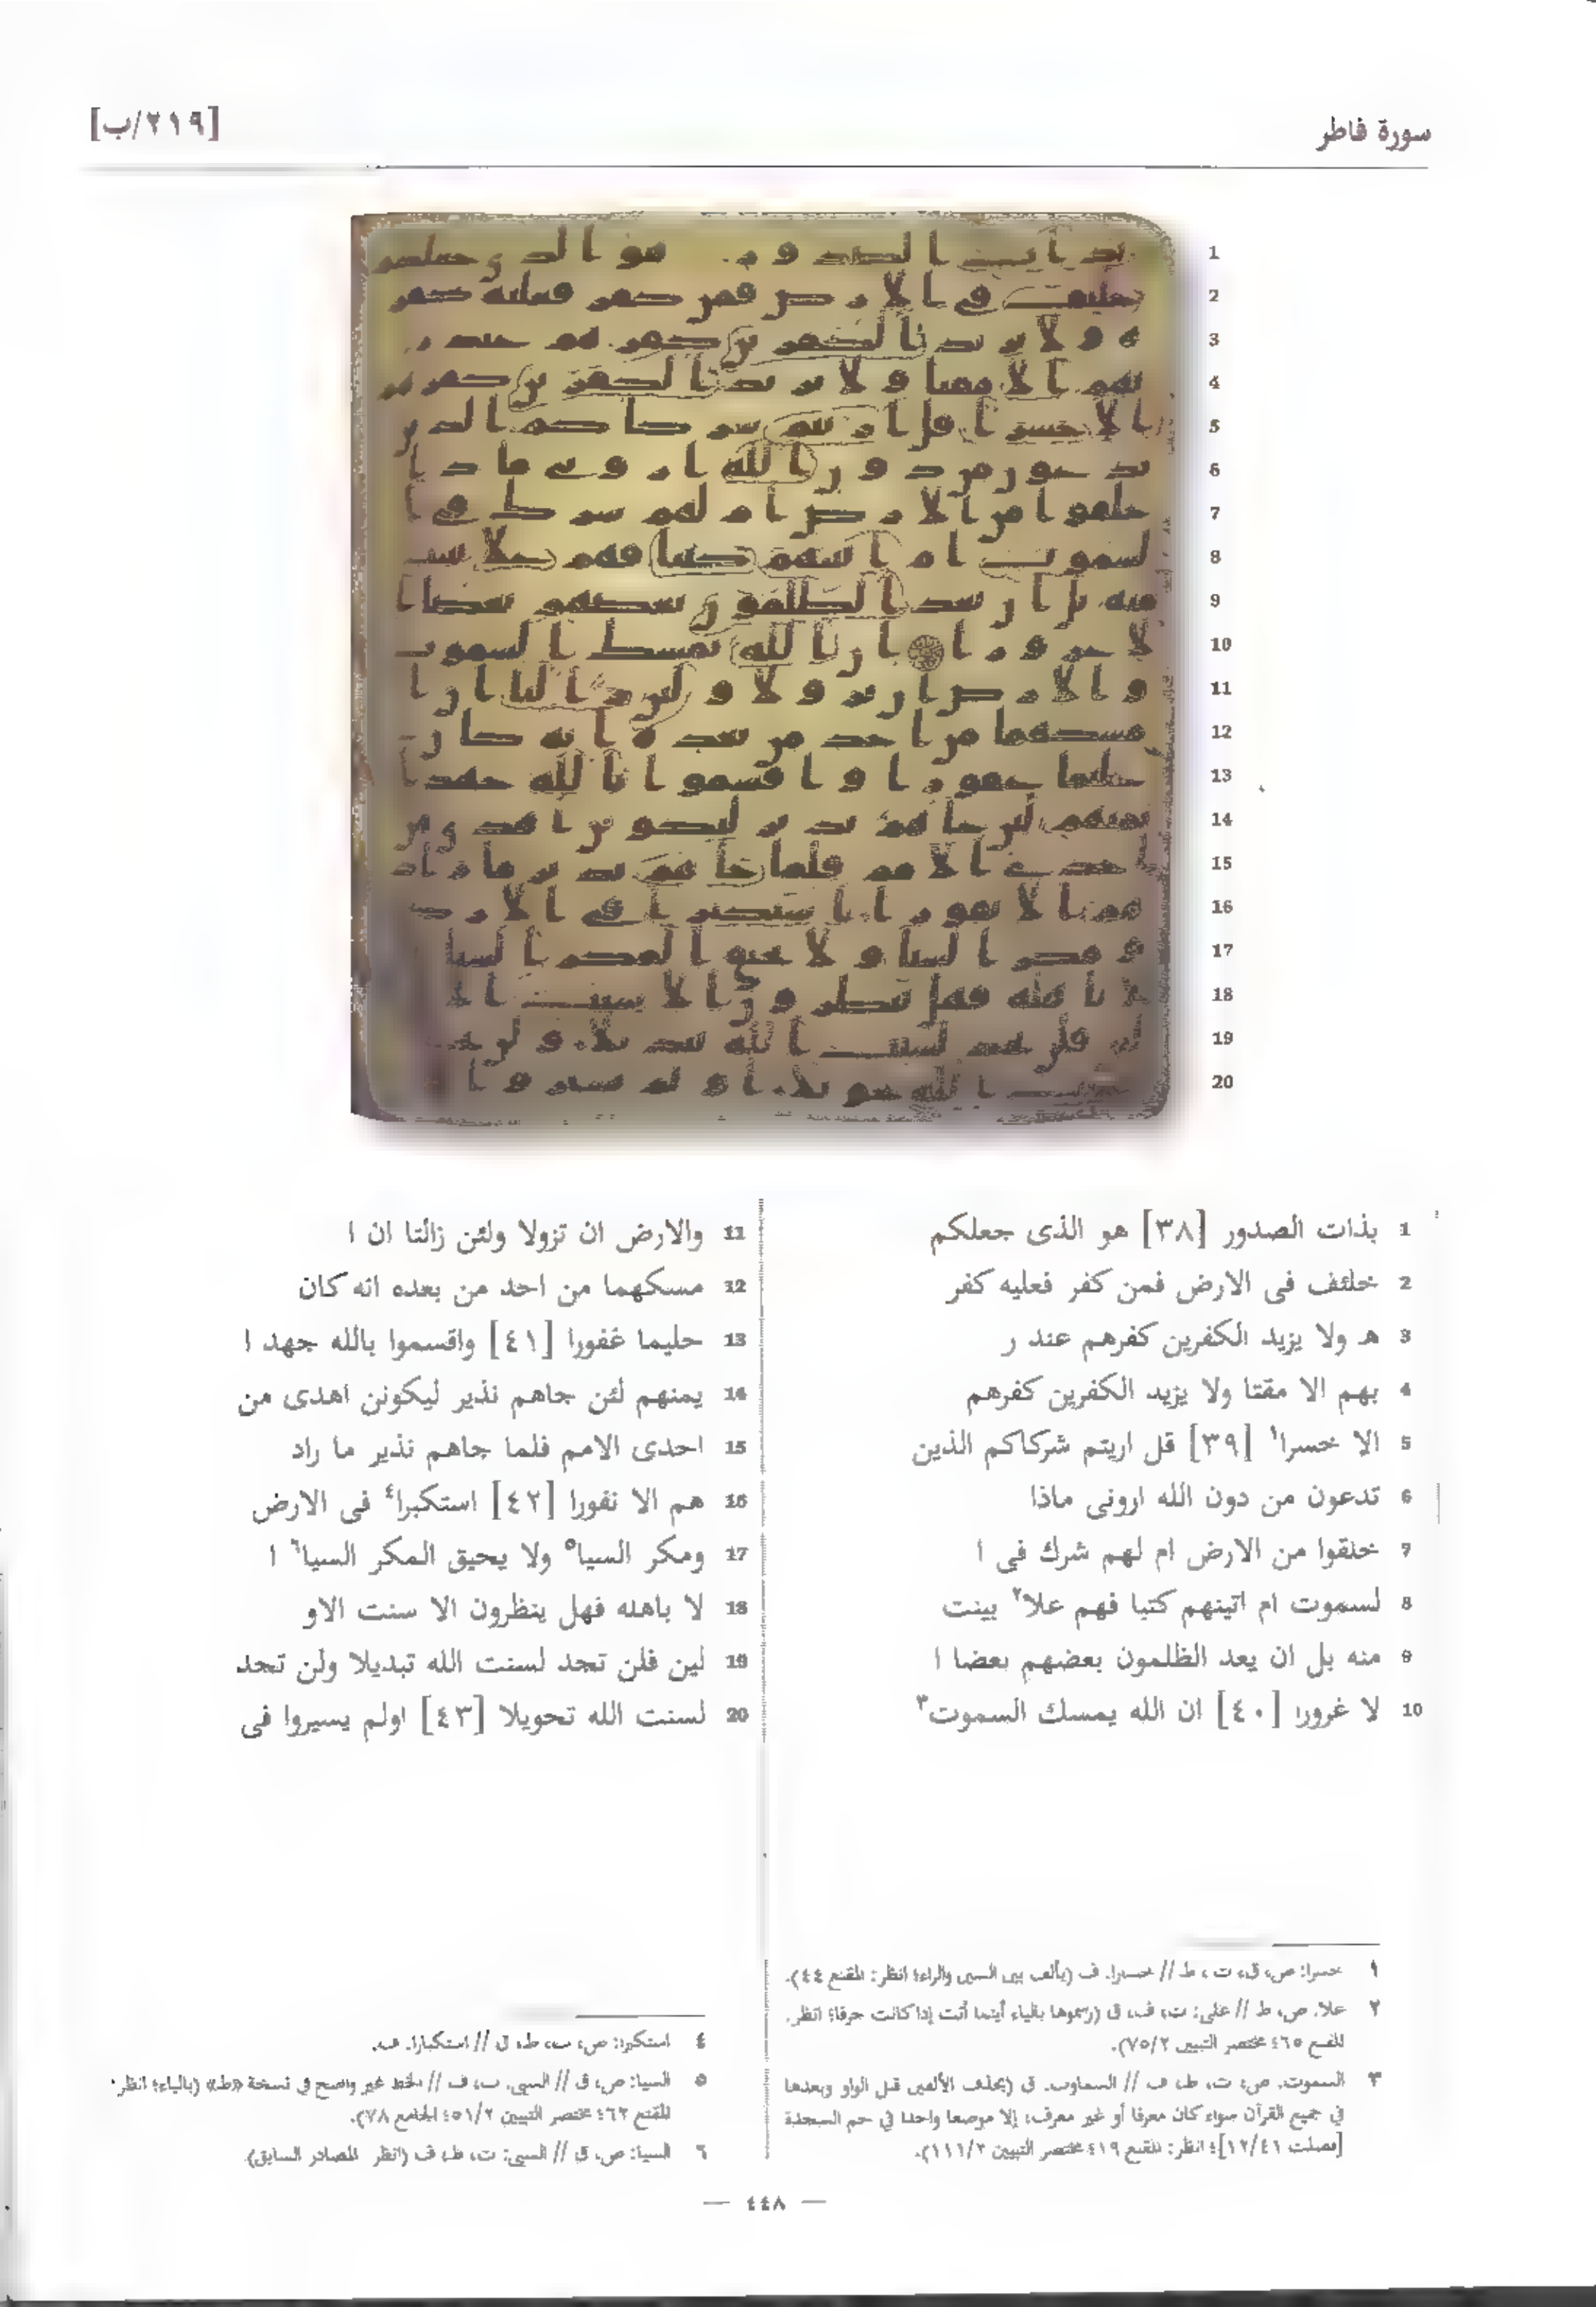 سورة فاطر
[٢١٩/ب]
1 بذات الصدور [٣٨] هو الذى جعلكم
2 خلئف فى الارض فمن كفر فعليه كفر
3 هـ ولا يزيد الكفرين كفرهم عند ر
4 بهم الا مقتا ولا يزيد الكفرين كفرهم
5 الا خسرا١ [٣٩] قل اريتم شركاكم الذين
6 تدعون من دون الله ارونى ماذا
7 خلقوا من الارض ام لهم شرك فى ا
8 لسموت ام اتينهم كتبا فهم علا٢ بينت
9 منه بل ان يعد الظلمون بعضهم بعضا ا
10 لا غرورا [٤٠] ان الله يمسك السموت٣
11 والارض ان تزولا ولئن زالتا ان ا
12 مسكهما من احد من بعده انه كان
13 حليما غفورا [٤١] واقسموا بالله جهد ا
14 يمنهم لئن جاهم نذير ليكونن اهدى من
15 احدى الامم فلما جاهم نذير ما زاد
16 هم الا نفورا [٤٢] استكبرا٤ فى الارض
17 ومكر السيا٥ ولا يحيق المكر السيا٦ ا
18 لا باهله فهل ينظرون الا سنت الاو
19 لين فلن تجد لسنت الله تبديلا ولن تجد
20 لسنت الله تحويلا [٤٣] اولم يسيروا فى
١ خسرا: ص، ق، ت، ط // خسارا. ف (بألف بين السين والراء؛ انظر: المقنع ٤٤).
٢ علا. ص، ط // على: ت، ف، ق (رسموها بالياء أينما أتت إذا كانت حرفا؛ انظر.
المقنع ٤٦٥ مختصر التبيين ٧٥/٢).
٣ السموت. ص، ت، ط، ف // السماوت. ق (بحذف الألفين قبل الواو وبعدها
في جميع القرآن سواء كان معرفا أو غير معرف، إلا موضعا واحدا في حم السجدة
[فصلت ١٢/٤١]؛ انظر: المقنع ٤١٩ مختصر التبيين ١١١/٢).
٤ استكبرا: ص، ت، ط، ق // استكبارا. ف.
٥ السيا: ص، ق // السيى. ت، ف // الخط غير واضح في نسخة «ط» (بالياء؛ انظر
المقنع ٤٦٢ مختصر التبيين ٤٥١/٢ الجامع ٧٨).
٦ السيا: ص، ق // السيى: ت، ط، ف (انظر المصادر السابق).
— ٤٤٨ —